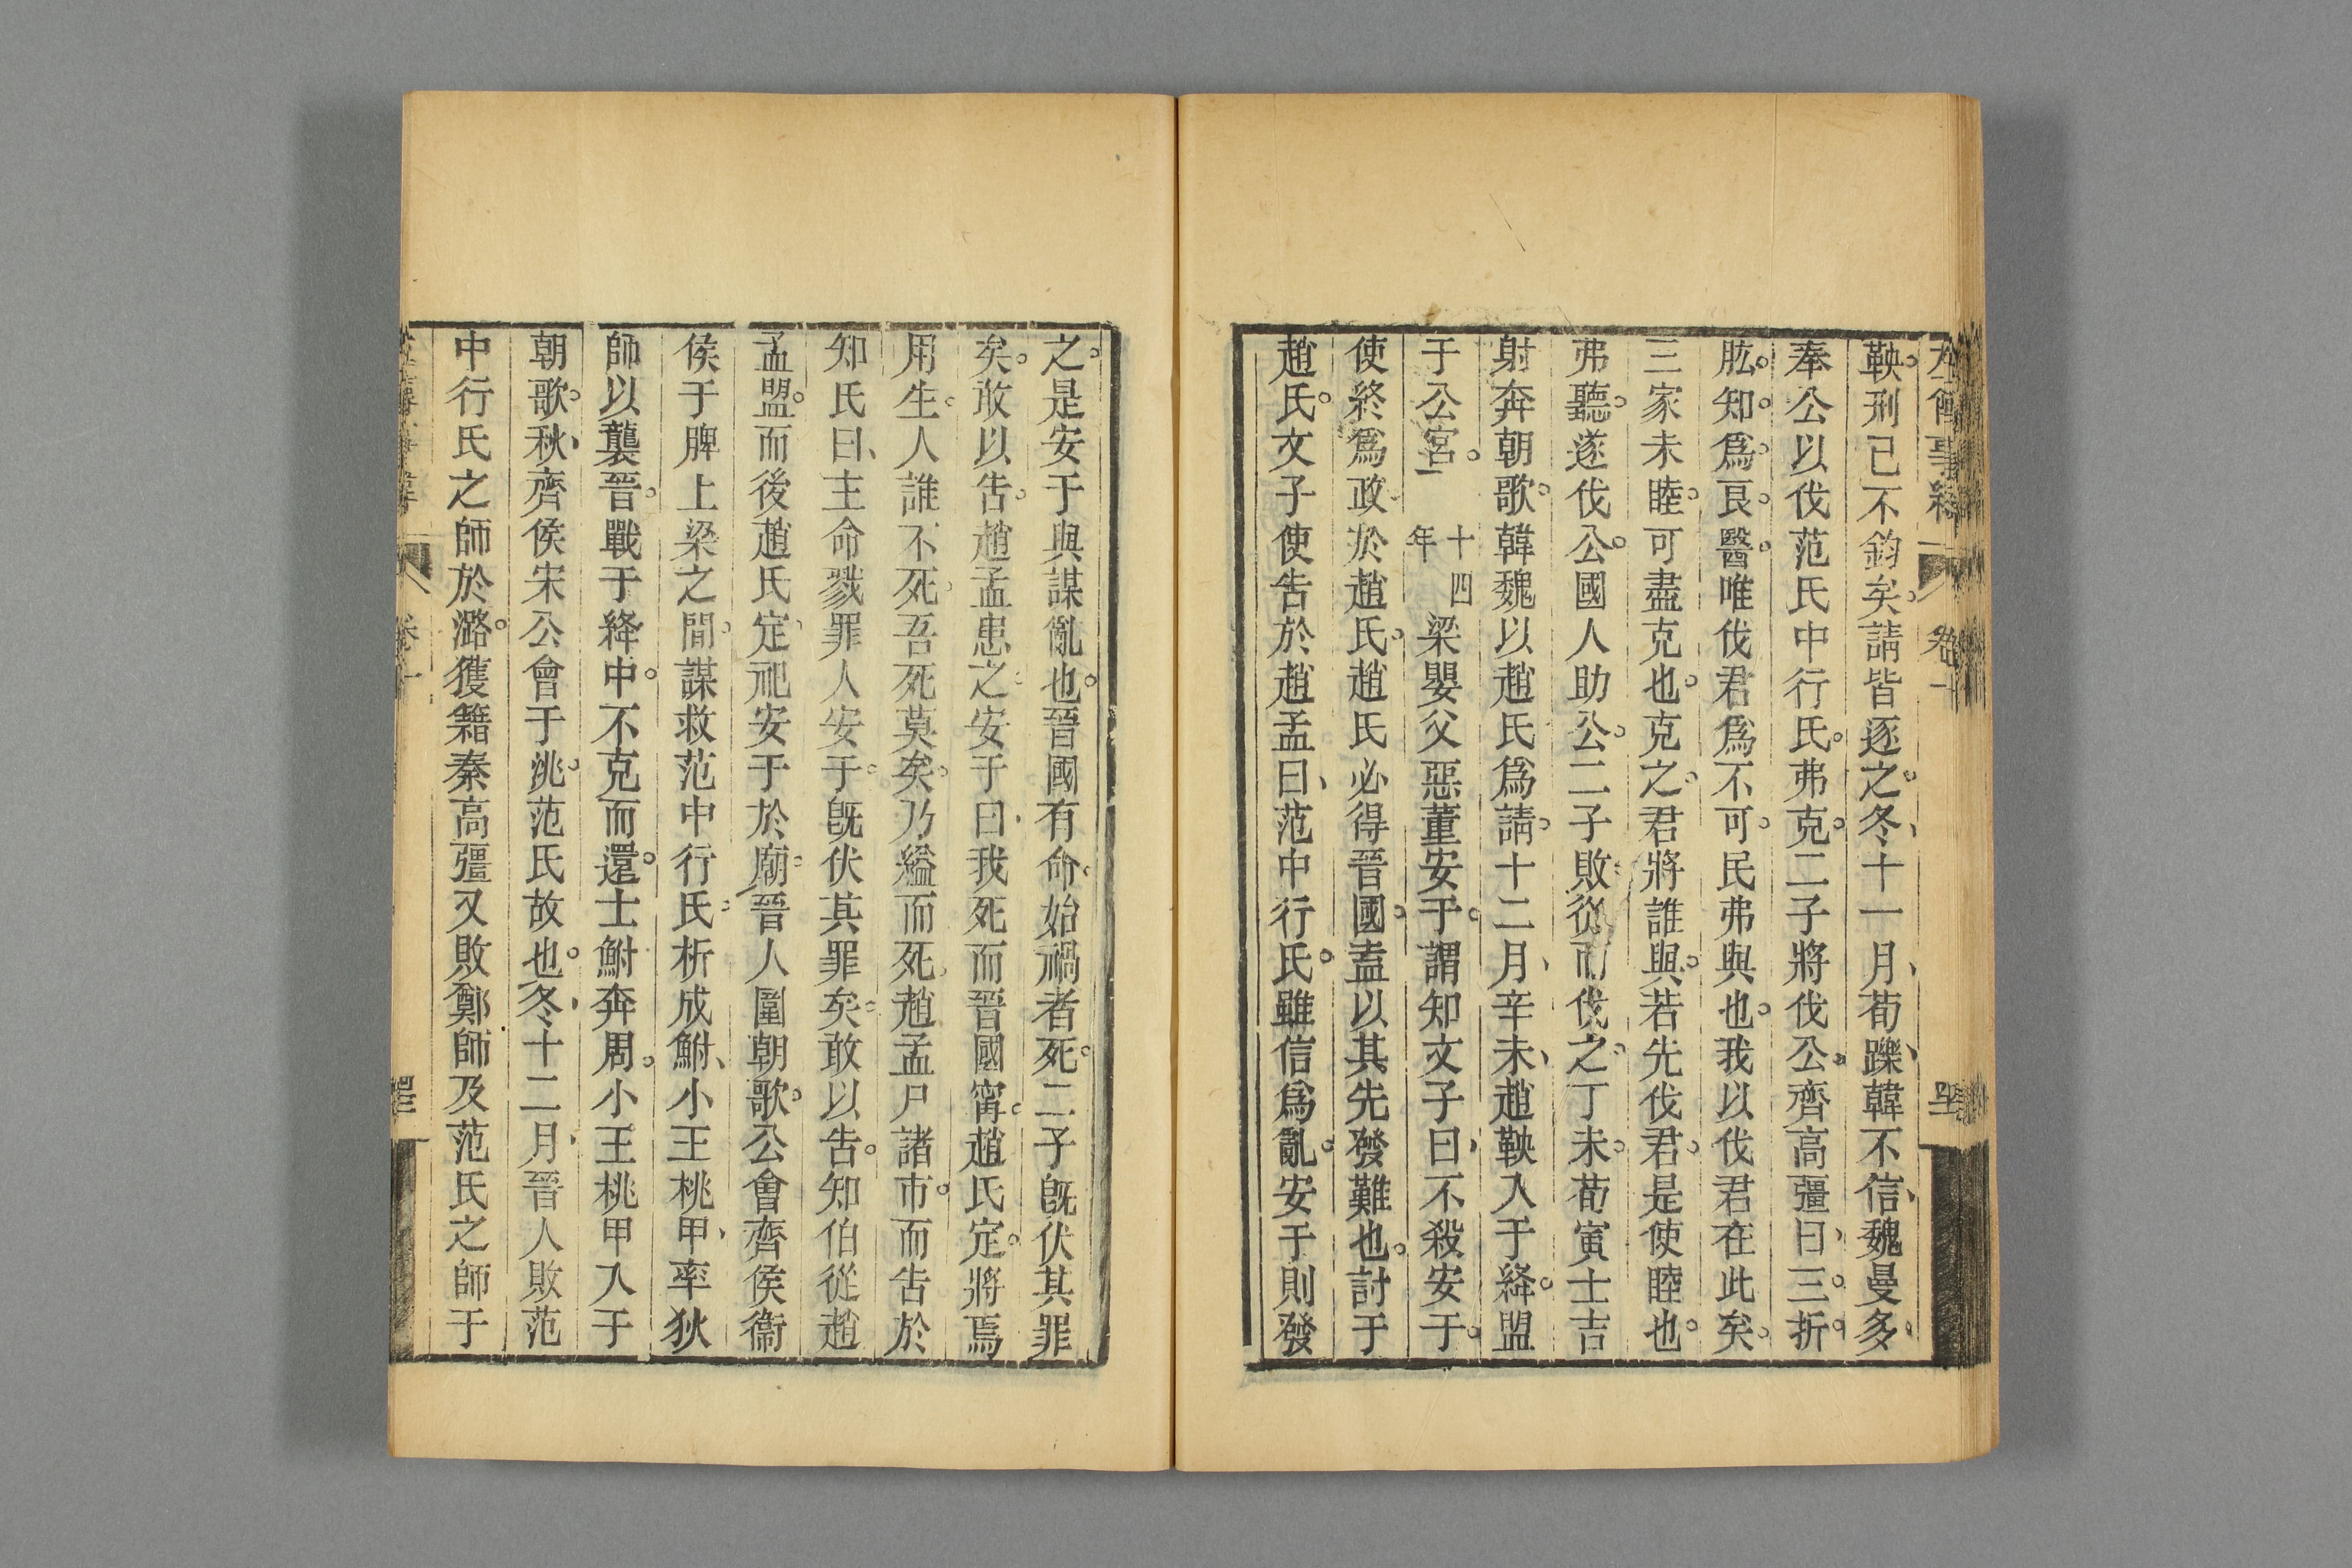 鞅刑已不鈞矣。請皆逐之。冬、十一月、荀躒、韓不信、魏曼多。
奉公以伐范氏中行氏。弗克。二子將伐公。齊高彊曰、三。折。
肱。知。爲。良。醫。唯伐君爲不可。民弗與也。我以伐君在此矣。
三家未睦。可盡克也。克之。君將誰與。若先伐君。是使睦也。
弗聽。遂伐公。國人助公。二子敗。從而伐之。丁未。荀寅士吉
射奔朝歌。韓魏以趙氏爲請。十二月、辛未、趙鞅入于絳。盟
于公宮。 十四年 梁嬰父惡董安于。謂知文子曰、不殺安于。
使終爲政於趙氏。趙氏必得晉國。盍以其先發難也。討于
趙氏。文子使告於趙孟曰、范中行氏。雖信爲亂。安于則發
之。是安于與謀亂也。晉國有命。始禍者死。二子旣伏其罪
矣。敢以告。趙孟患之。安于曰、我死而晉國甯。趙氏定。將焉
用生。人誰不死。吾死莫矣。乃縊而死。趙孟尸諸市。而告於
知氏曰、主命戮罪人安于。旣伏其罪矣。敢以告。知伯從趙
孟盟。而後趙氏定。祀安于於廟。晉人圍朝歌。公會齊侯衞
侯于脾上梁之間。謀救范中行氏。析成鮒、小王桃甲、率狄
師以襲晉。戰于絳中。不克而還。士鮒奔周。小王桃甲入于
朝歌。秋、齊侯宋公會于洮。范氏故也。冬、十二月、晉人敗范
中行氏之師於潞。獲籍秦高彊又敗鄭師及范氏之師于